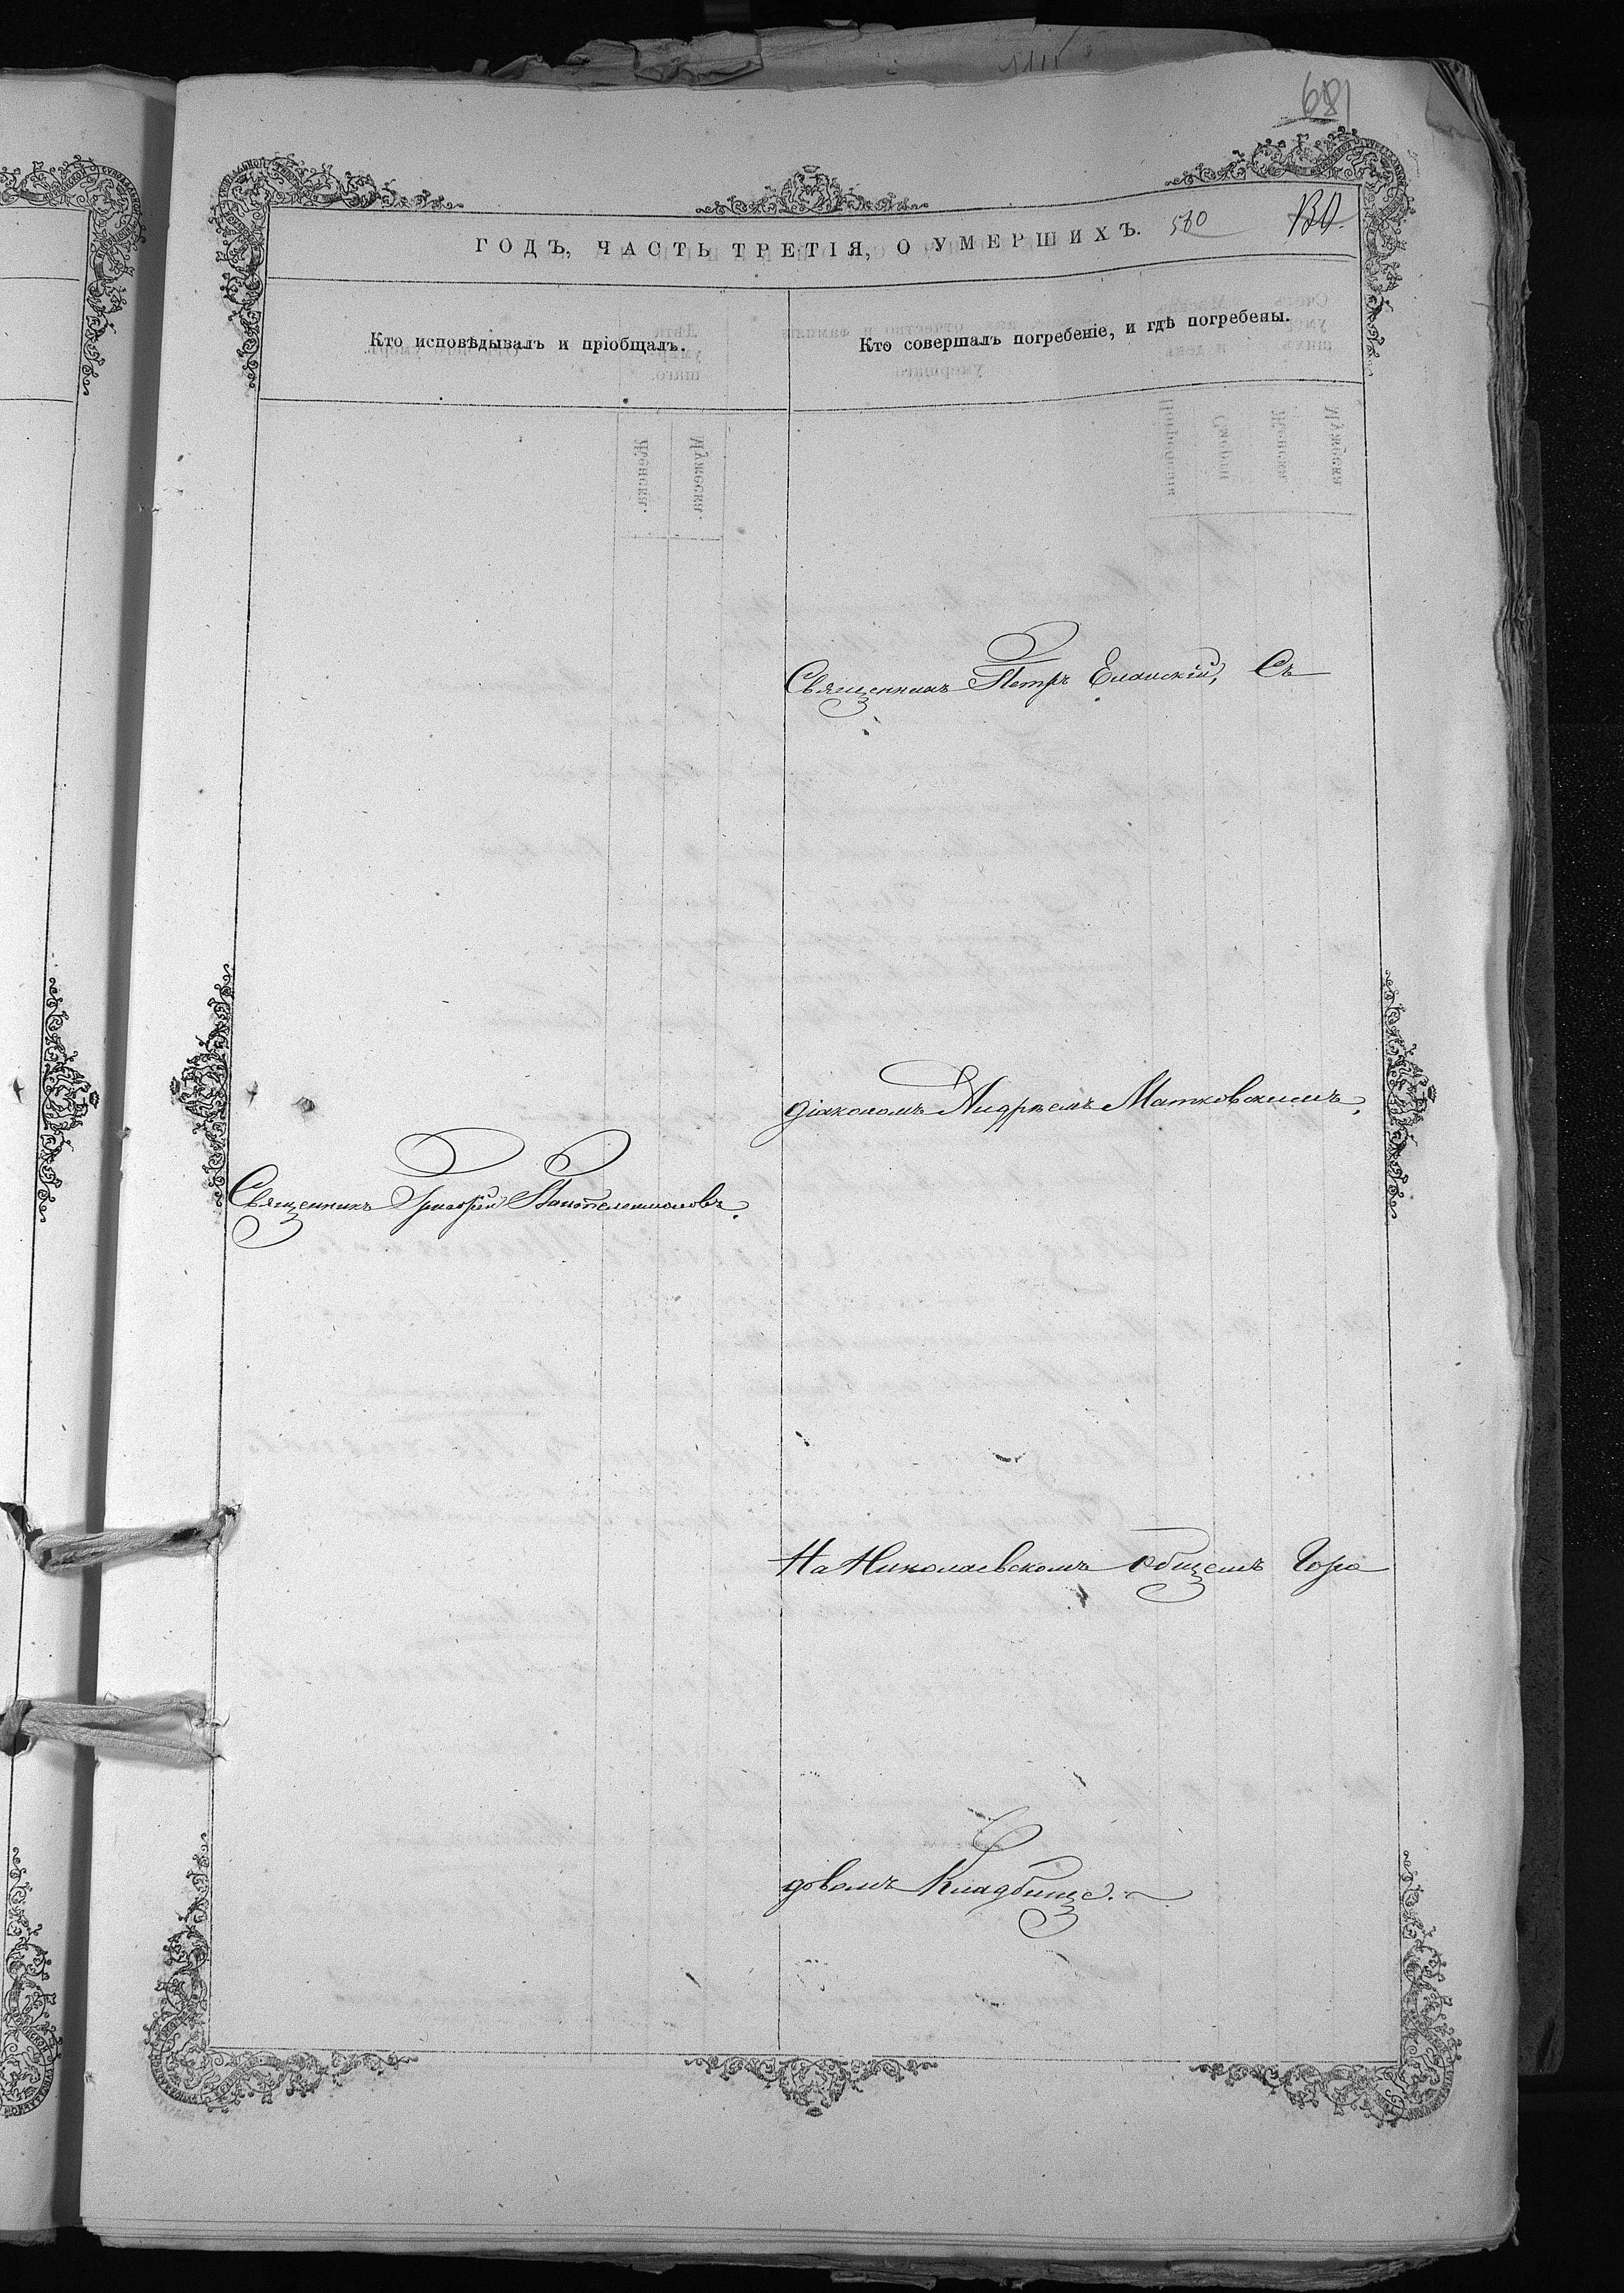 681
ГОДЪ, ЧАСТЬ ТРЕТІЯ, О УМЕРШИХЪ. 580
Кто исповѣдывалъ и пріобщалъ.
Кто совершалъ погребеніе, и гдѣ погребены.
Священникъ Петръ Еланскій, Съ
діакономъ Андреемъ Матковскимъ,
Священникъ Григорій Пантелеимоновъ.
На Николаевскомъ общемъ Горо
довомъ Кладбище.